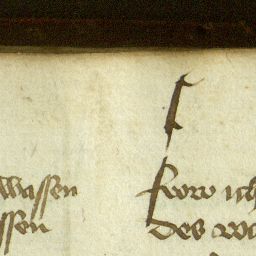 waſſen
ſſen
ſrow ich
des wa